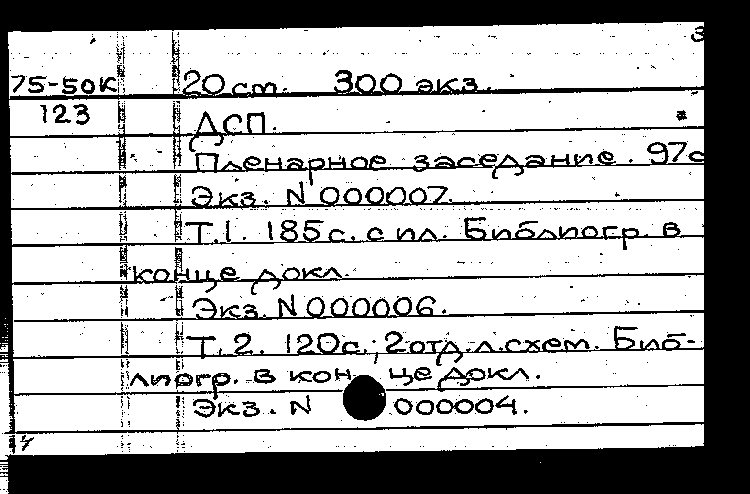 3
75-50К 20 см. 300 экз.
123 ДСП.
Пленарное заседание. 97с
Экз. N 000007.
Т.1. 185 с. с ил. Библиогр. в
конце докл.
Экз. N 000006.
Т.2. 120с.; 2 отд. л. схем. Биб-
лиогр. в конце докл.
Экз. N 000004.